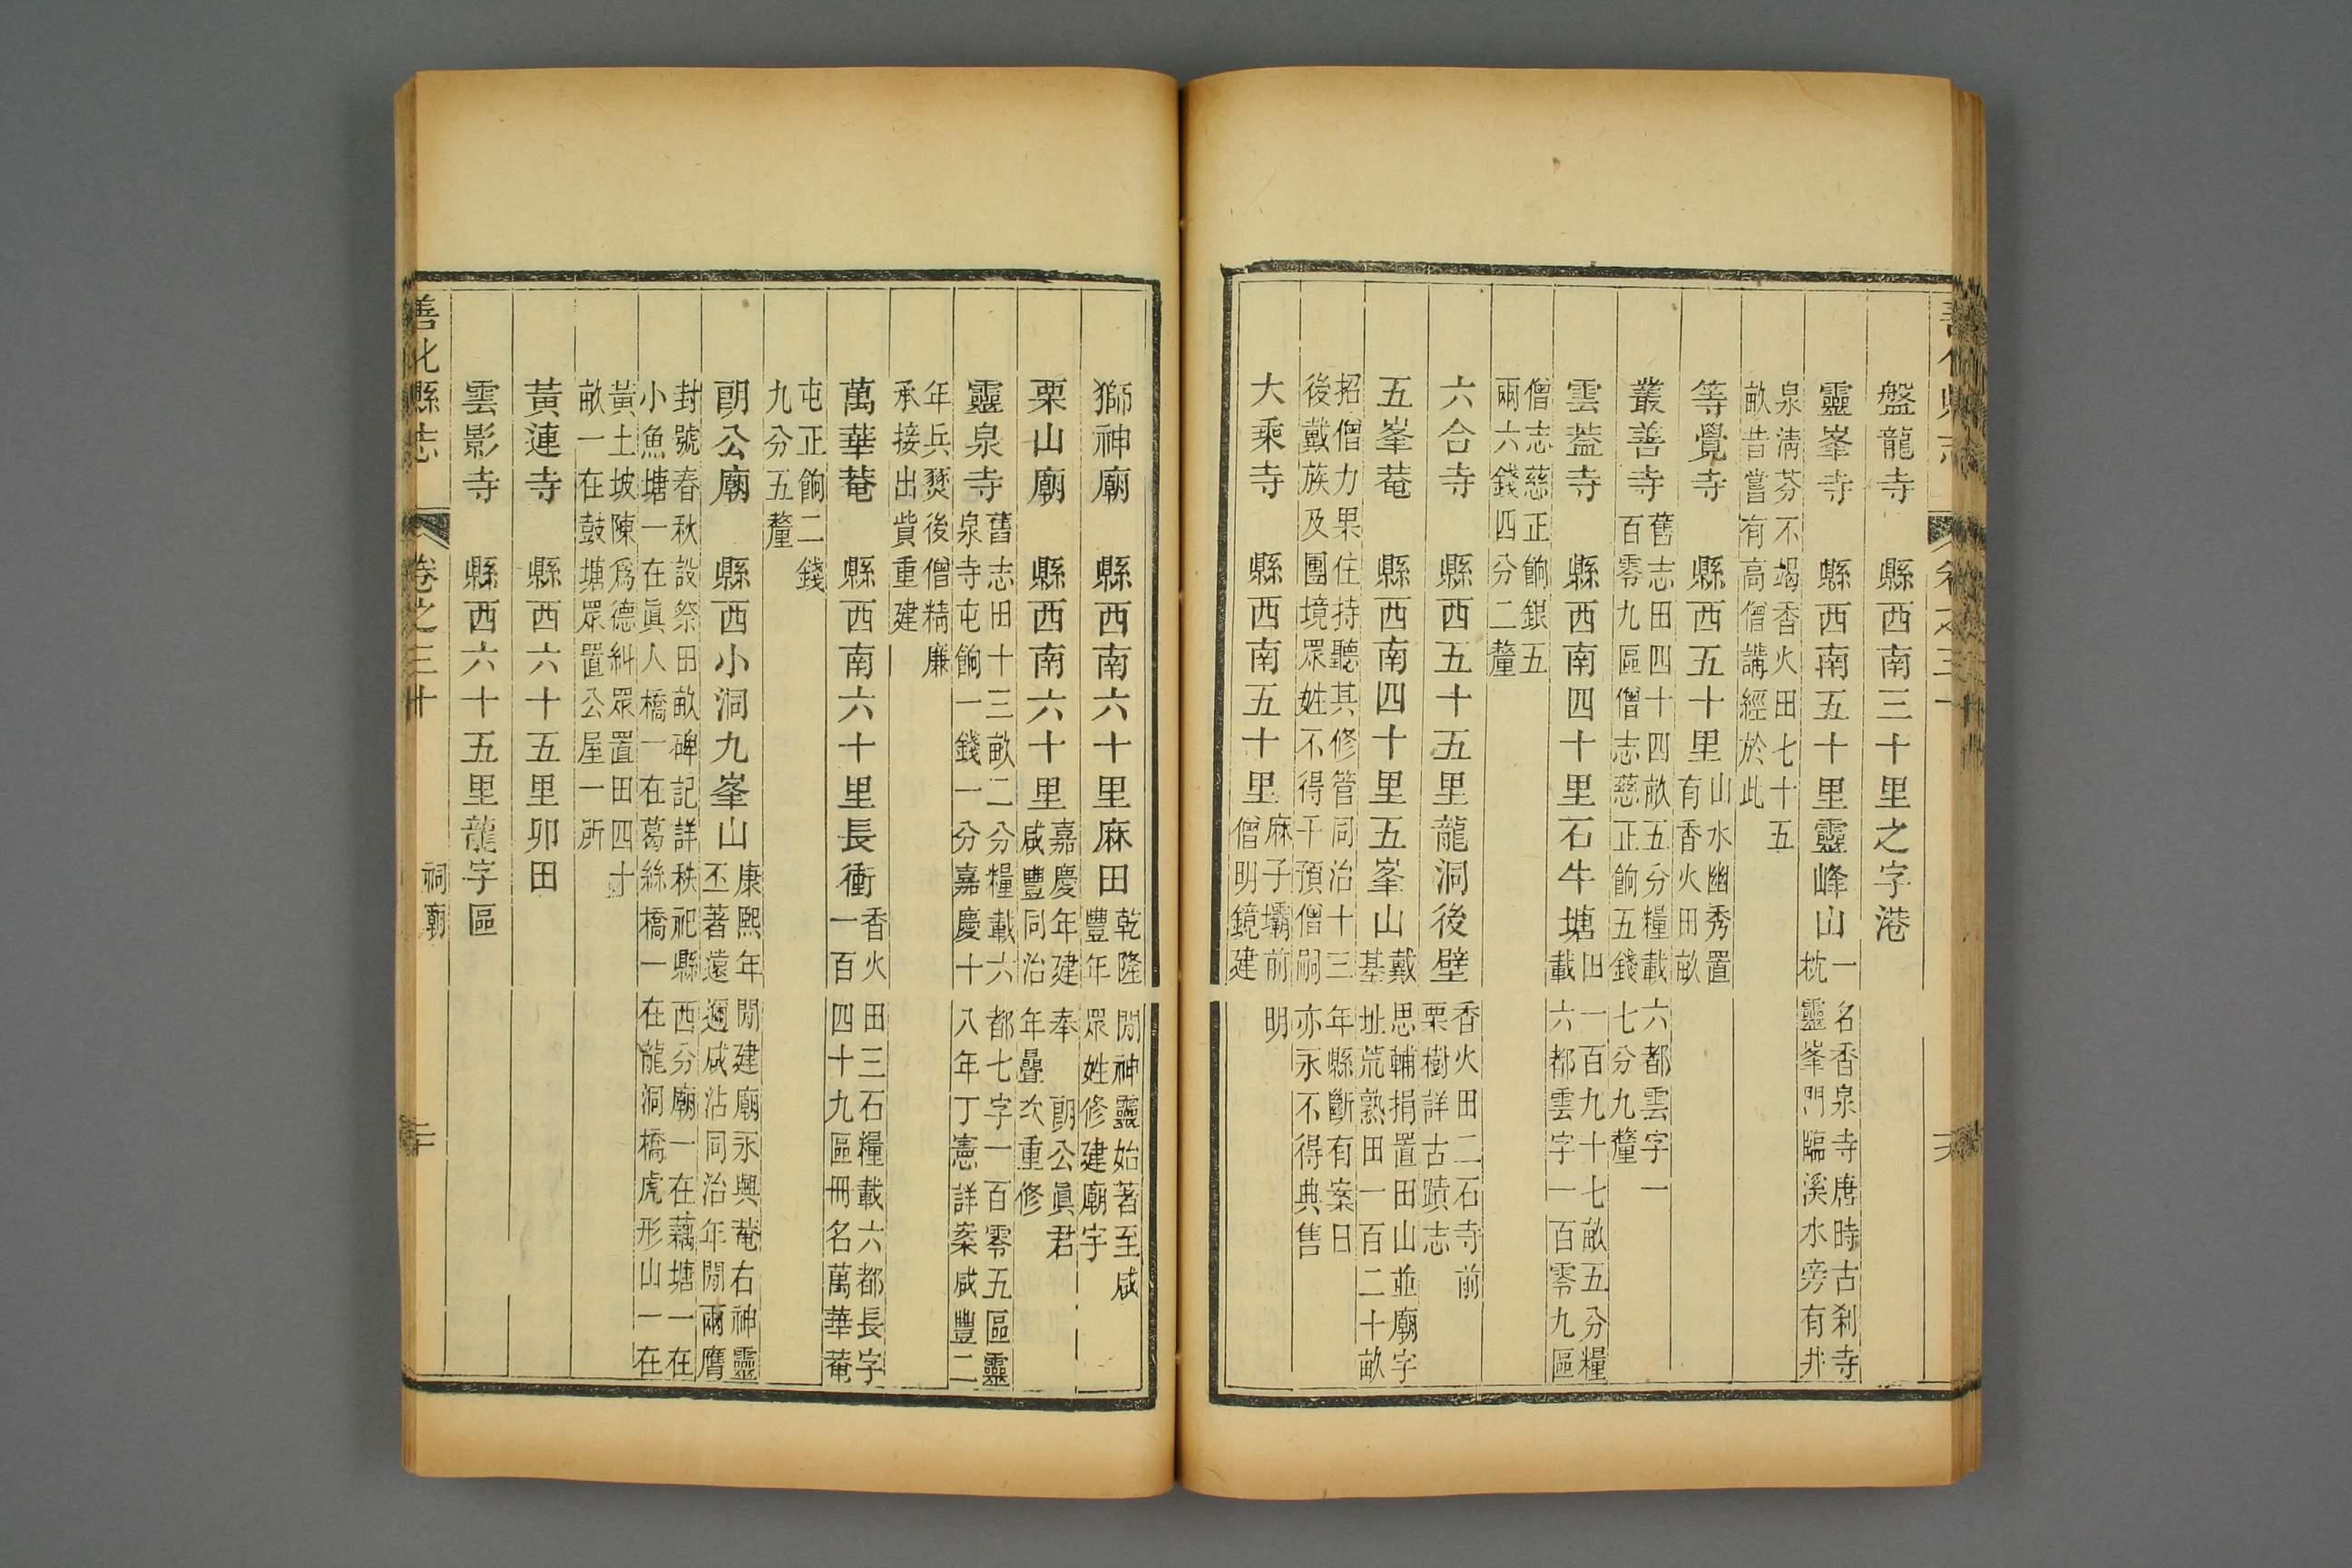 善化縣志
卷之三十
盤龍寺 縣西南三十里之字港
靈峯寺 縣西南五十里靈峰山一名香泉寺唐時古刹寺
枕靈峯門臨溪水旁有井
泉淸芬不竭香火田七十五
畝昔嘗有高僧講經於此
等覺寺 縣西五十里山水幽秀置
有香火田畝
叢善寺舊志田四十四畝五分糧載六都雲字一
百零九區僧志慈正餉五錢七分九釐
雲葢寺 縣西南四十里石牛塘田一百九十七畝五分糧
載六都雲字一百零九區
僧志慈正餉銀五
兩六錢四分二釐
六合寺 縣西五十五里龍洞後壁香火田二石寺前
栗樹詳古蹟志
五峯菴 縣西南四十里五峯山戴思輔捐置田山並廟字
基址荒熟田一百二十畝
招僧力果住持聽其修管同治十三年縣斷有案日
後戴族及團境眾姓不得干預僧嗣亦永不得典售
大乘寺 縣西南五十里麻子壩前明
僧明鏡建
獅神廟 縣西南六十里麻田乾隆閒神靈始著至咸
豐年眾姓修建廟宇
栗山廟 縣西南六十里嘉慶年建奉 朗公眞君
咸豐同治年疊次重修
靈泉寺舊志田十三畝二分糧載六都七字一百零五區靈
泉寺屯餉一錢一分嘉慶十八年丁憲詳案咸豐二
年兵燹後僧精廉
承接出貲重建
萬華菴 縣西南六十里長衝香火田三石糧載六都長字
一百四十九區冊名萬華菴
屯正餉二錢
九分五釐
朗公廟 縣西小洞九峯山康熙年閒建廟永興菴右神靈
丕著遠邇咸沾同治年閒兩膺
封號春秋設祭田畝碑記詳秩祀縣西分廟一在藕塘一在
小魚塘一在眞人橋一在葛絲橋一在龍洞橋虎形山一在
黃土坡陳爲德糾眾置田四十
畝一在鼓塘眾置公屋一所
黃連寺 縣西六十五里卯田
雲影寺 縣西六十五里龍字區
善化縣志
卷之三十
祠廟
二十